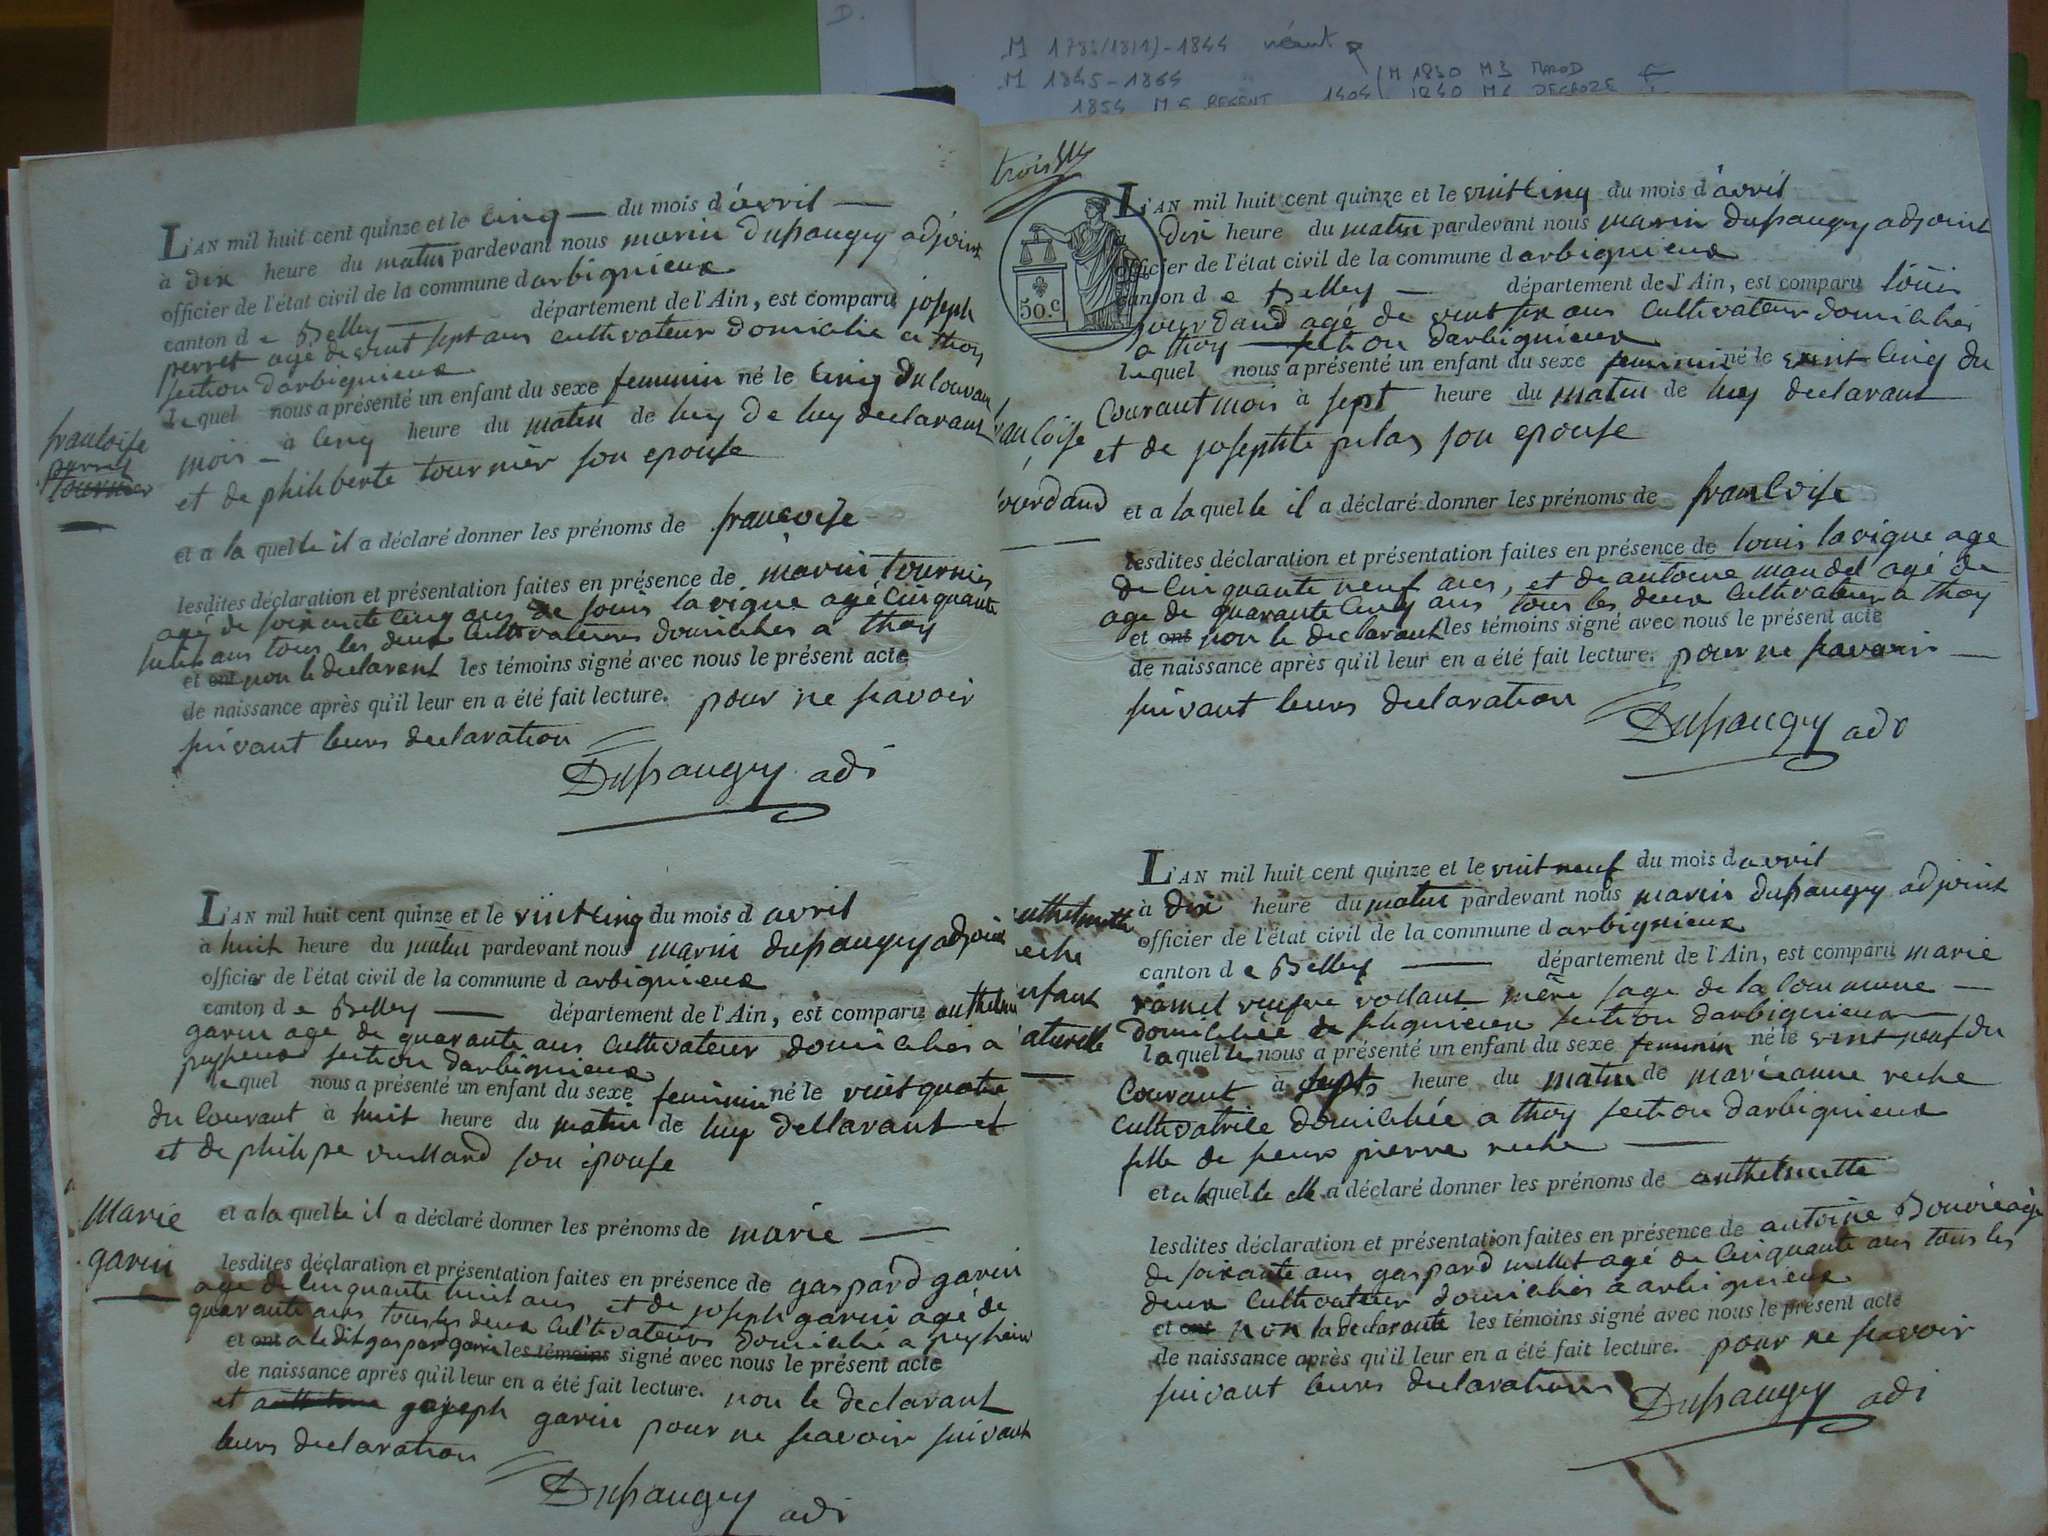 D.
M 1845-1864
M 1830 M3 MAROD
1840 M6 DECROZE
1854 M 5 REGENT
L'AN mil huit cent quinze et le cinq du mois d'avril
à dix heure du matin pardevant nous marin dupraugey adjoint
officier de l'état civil de la commune d arbignieux
canton d e Belley département de l'Ain, est comparu joseph
perret agé de vint sept ans cultivateur domicilié a thoy
section darbignieux
lequel nous a présenté un enfant du sexe feminin né le cinq du couran
mois à cinq heure du matin de luy de luy declarant
et de philiberte tournier son epouse
francoise
perret
tournier
et a la quelle il a déclaré donner les prénoms de francoise
lesdites déclaration et présentation faites en présence de marin tournier
agé de soixante cinq ans de louis lavigue agé cinquante
huit ans tous les deux cultivateurs domicilies a thoy
et ont non le declarent les témoins signé avec nous le présent acte
de naissance après qu'il leur en a été fait lecture. pour ne scavoir
suivant leurs declaration
Dupraugey adj
L'AN mil huit cent quinze et le vint cinq du mois d avril
à huit heure du matin pardevant nous marin dupraugey adjoint
officier de l'état civil de la commune d arbignieux
canton d e Belley département de l'Ain, est comparu anthelme
garin age de quarante ans cultivateur domicilies à
peyzieux section darbignieux
lequel nous a présenté un enfant du sexe feminin né le vint quatre
du courant à huit heure du matin de luy declarant et
et de philipe vuillard son épouse
Marie
garin
et a la quelle il a déclaré donner les prénoms de marie
lesdites déclaration et présentation faites en présence de gaspard garin
age de cinquante huit ans et de joseph garin agé de
quarante ans tous les deux cultivateurs domicilié a peyzieu
et ont a ledit gaspard garin les témoins signé avec nous le présent acte
de naissance après qu'il leur en a été fait lecture. non le declarant
et joseph garin pour ne scavoir suivant
leurs declaration
Dupraugey adj
trois
50.c
L'AN mil huit cent quinze et le vint cinq du mois d'avril
dix heure du matin pardevant nous marin dupraugey adjoint
officier de l'état civil de la commune d arbignieux
canton d e Belley département de l'Ain, est comparu louis
jourdand agé de vint six ans cultivateur domicilies
a thoy section darbignieux
lequel nous a présenté un enfant du sexe feminin né le vint cinq du
courant mois à sept heure du matin de luy declarant
et de josephte pilas son epouse
ançoise
ourdand
et a laquelle il a déclaré donner les prénoms de francoise
lesdites déclaration et présentation faites en présence de louis lavigue age
de cinquante neuf ans, et de antoine maudel agé de
age de quarante cinq ans tous les deux cultivateur a thoy
et ont non le declarant les témoins signé avec nous le présent acte
de naissance après qu'il leur en a été fait lecture. pour ne scavoir
suivant leurs declaration
Dupraugey adj
L'AN mil huit cent quinze et le vint neuf du mois d avril
à dix heure du matin pardevant nous marin dupraugey adjoint
officier de l'état civil de la commune d arbignieux
canton d e Belley département de l'Ain, est comparu marie
ramel veufve rollant mère sage de la commune
domiciliée de section darbignieux
laquelle nous a présenté un enfant du sexe feminin né le vint neuf du
courant à sept heure du matin de marieanne reche
cultivatrice domiciliée a thoy section darbignieux
fille de feux pierre reche
nthelmette
eche
nfant
aturelle
et a laquelle elle a déclaré donner les prénoms de anthelmette
lesdites déclaration et présentation faites en présence de antoine Bouvié agé
de soixante ans gaspard millet agé de cinquante ans tous les
deux cultivateur domicilies a arbignieux
et ont non la declarante les témoins signé avec nous le présent acte
de naissance après qu'il leur en a été fait lecture. pour ne scavoir
suivant leurs declarations
Dupraugey adj